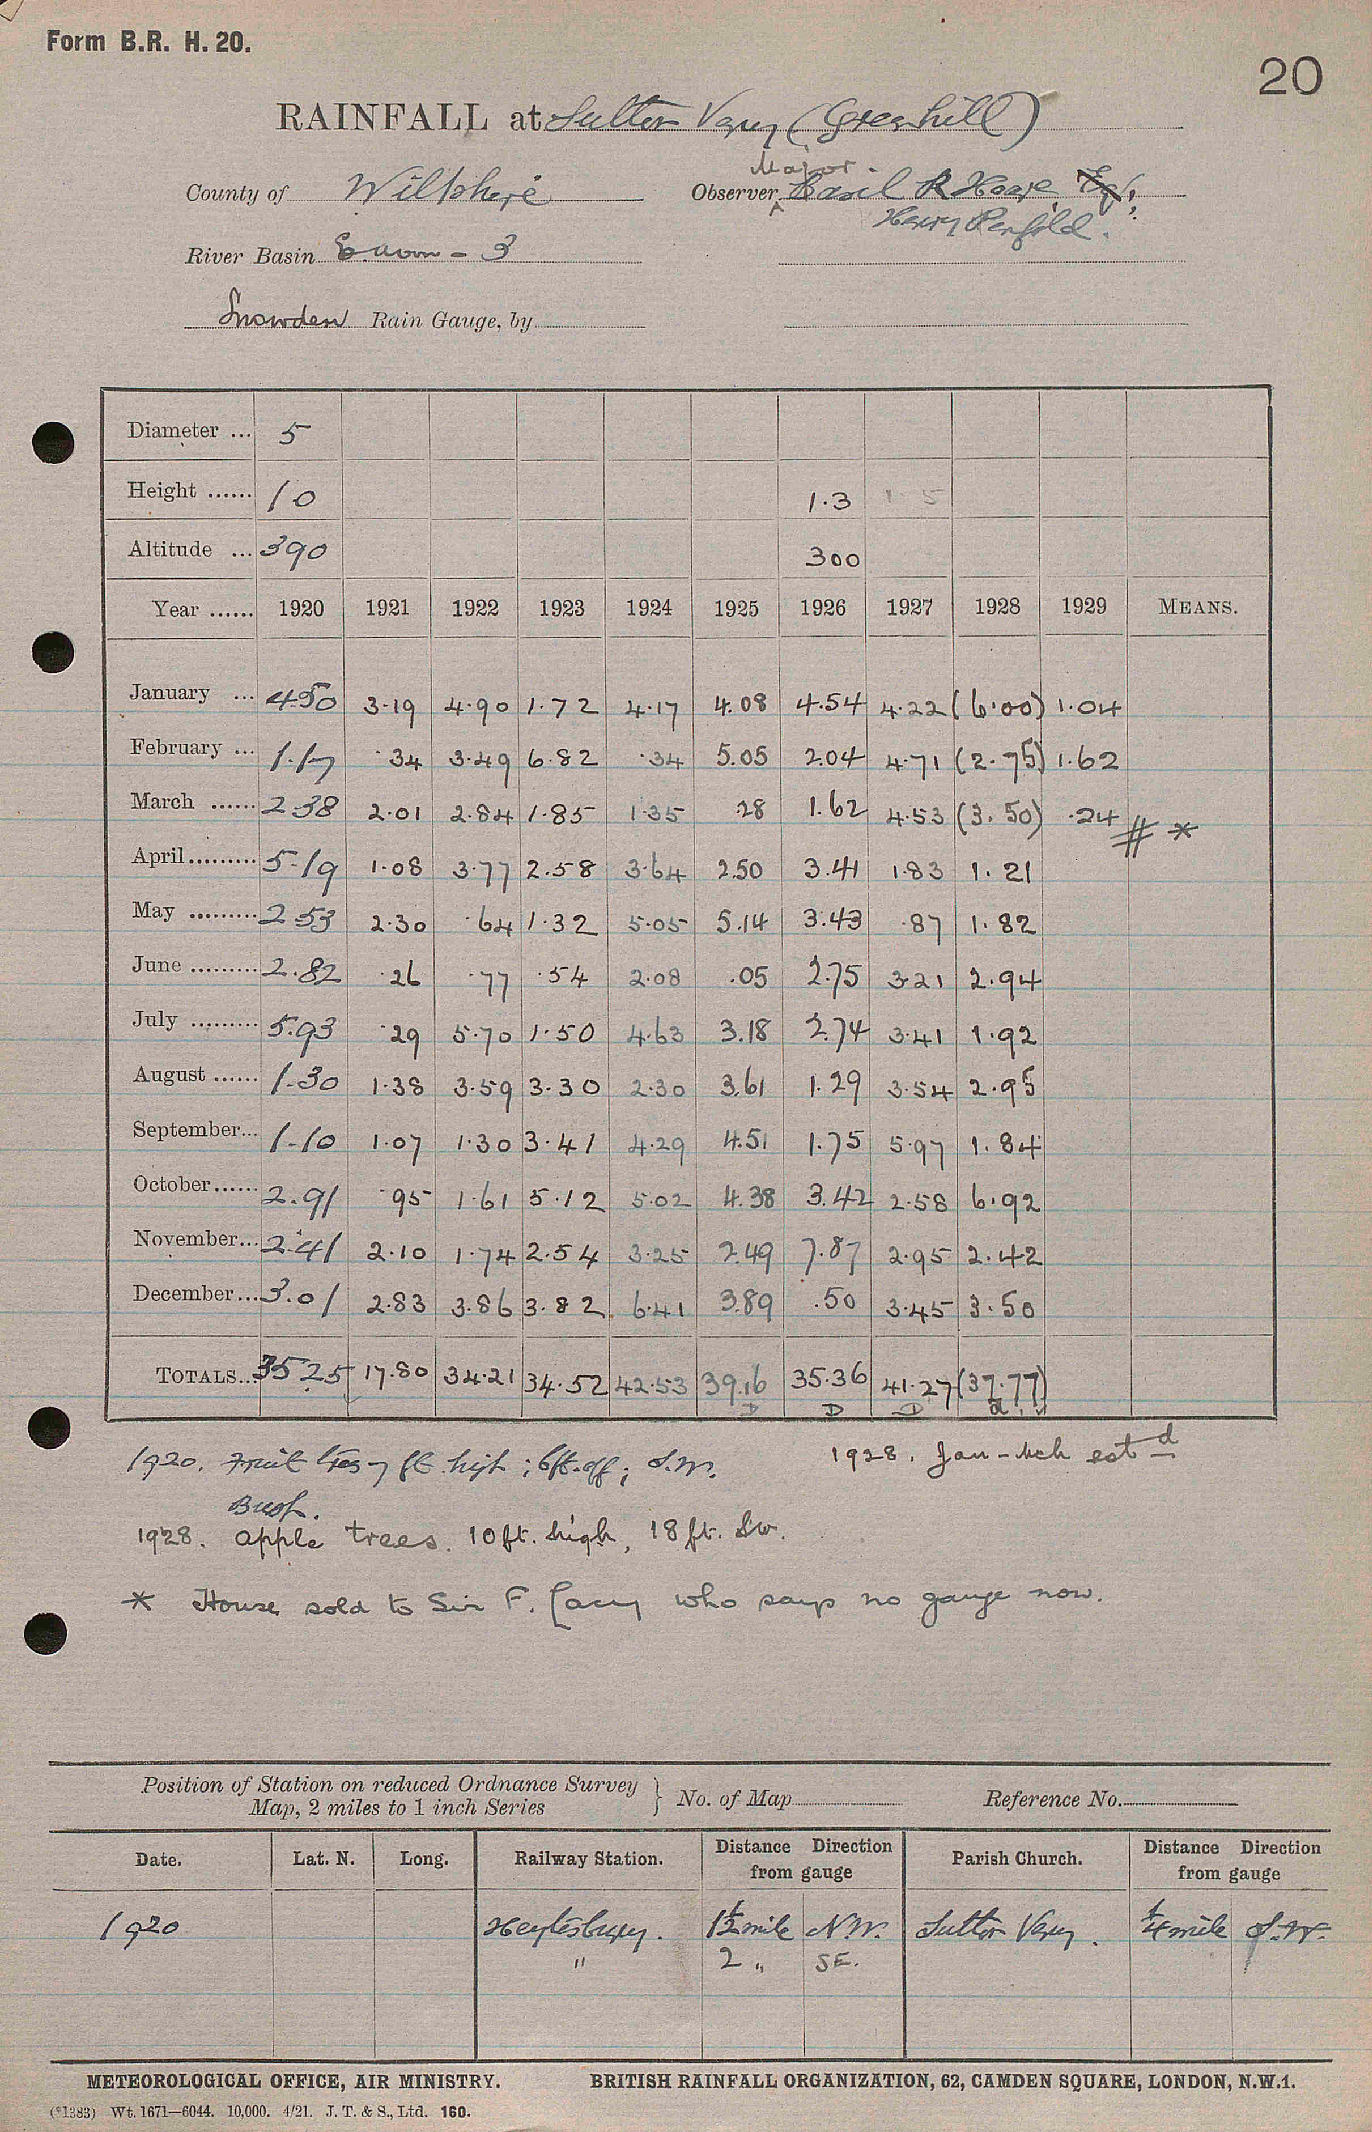 Form B.R. H. 20.
20
RAINFALL at Sutton Veny (Greenhill)
Major
County of Wiltshire Observer Basil R Hoare Esq.
Henry Penfold.
River Basin Avon - 3
Snowden Rain Gauge, by
Diameter ... 5
Height ...... 10 1.3 1 5
Altitude ... 390 300
Year ...... 1920 1921 1922 1923 1924 1925 1926 1927 1928 1929 MEANS.
January ... 4.50 3.19 4.90 1.72 4.17 4.08 4.54 4.22 (6.00) 1.04
February ... 1.17 .34 3.49 6.82 .34 5.05 2.04 4.71 (2.75) 1.62
March ...... 2.38 2.01 2.84 1.85 1.35 .28 1.62 4.53 (3.50) .24 # *
April ......... 5.19 1.08 3.77 2.58 3.64 2.50 3.41 1.83 1.21
May ......... 2.53 2.30 .64 1.32 5.05 5.14 3.43 .87 1.82
June ......... 2.82 .26 .77 .54 2.08 .05 2.75 3.21 2.94
July ......... 5.93 .29 5.70 1.50 4.63 3.18 2.74 3.41 1.92
August ...... 1.30 1.38 3.59 3.30 2.30 3.61 1.29 3.54 2.95
September... 1.10 1.07 1.30 3.41 4.29 4.51 1.75 5.97 1.84
October ...... 2.91 .95 1.61 5.12 5.02 4.38 3.42 2.58 6.92
November... 2.41 2.10 1.74 2.54 3.25 2.49 7.87 2.95 2.42
December... 3.01 2.83 3.86 3.82 6.41 3.89 .50 3.45 3.50
TOTALS... 35.25 17.80 34.21 34.52 42.53 39.16 35.36 41.27 (37.77)
D D D
1920. Fruit trees 7 ft high; 6ft. off; S.W. 1928. Jan-Mch estd
Bush.
1928. apple trees. 10ft. high, 18ft. SW.
* House sold to Sir F. Lacy who says no gauge now.
Position of Station on reduced Ordnance Survey Map, 2 miles to 1 inch Series } No. of Map Reference No.
Date. Lat. N. Long. Railway Station. Distance Direction from gauge Parish Church. Distance Direction from gauge
1920 Heytesbury. 1½ mile N.W. Sutton Veny. ¼ mile S.W.
" 2 " SE.
METEOROLOGICAL OFFICE, AIR MINISTRY. BRITISH RAINFALL ORGANIZATION, 62, CAMDEN SQUARE, LONDON, N.W.1.
(*1383) Wt. 1671—6044. 10,000. 4/21. J. T. & S., Ltd. 160.